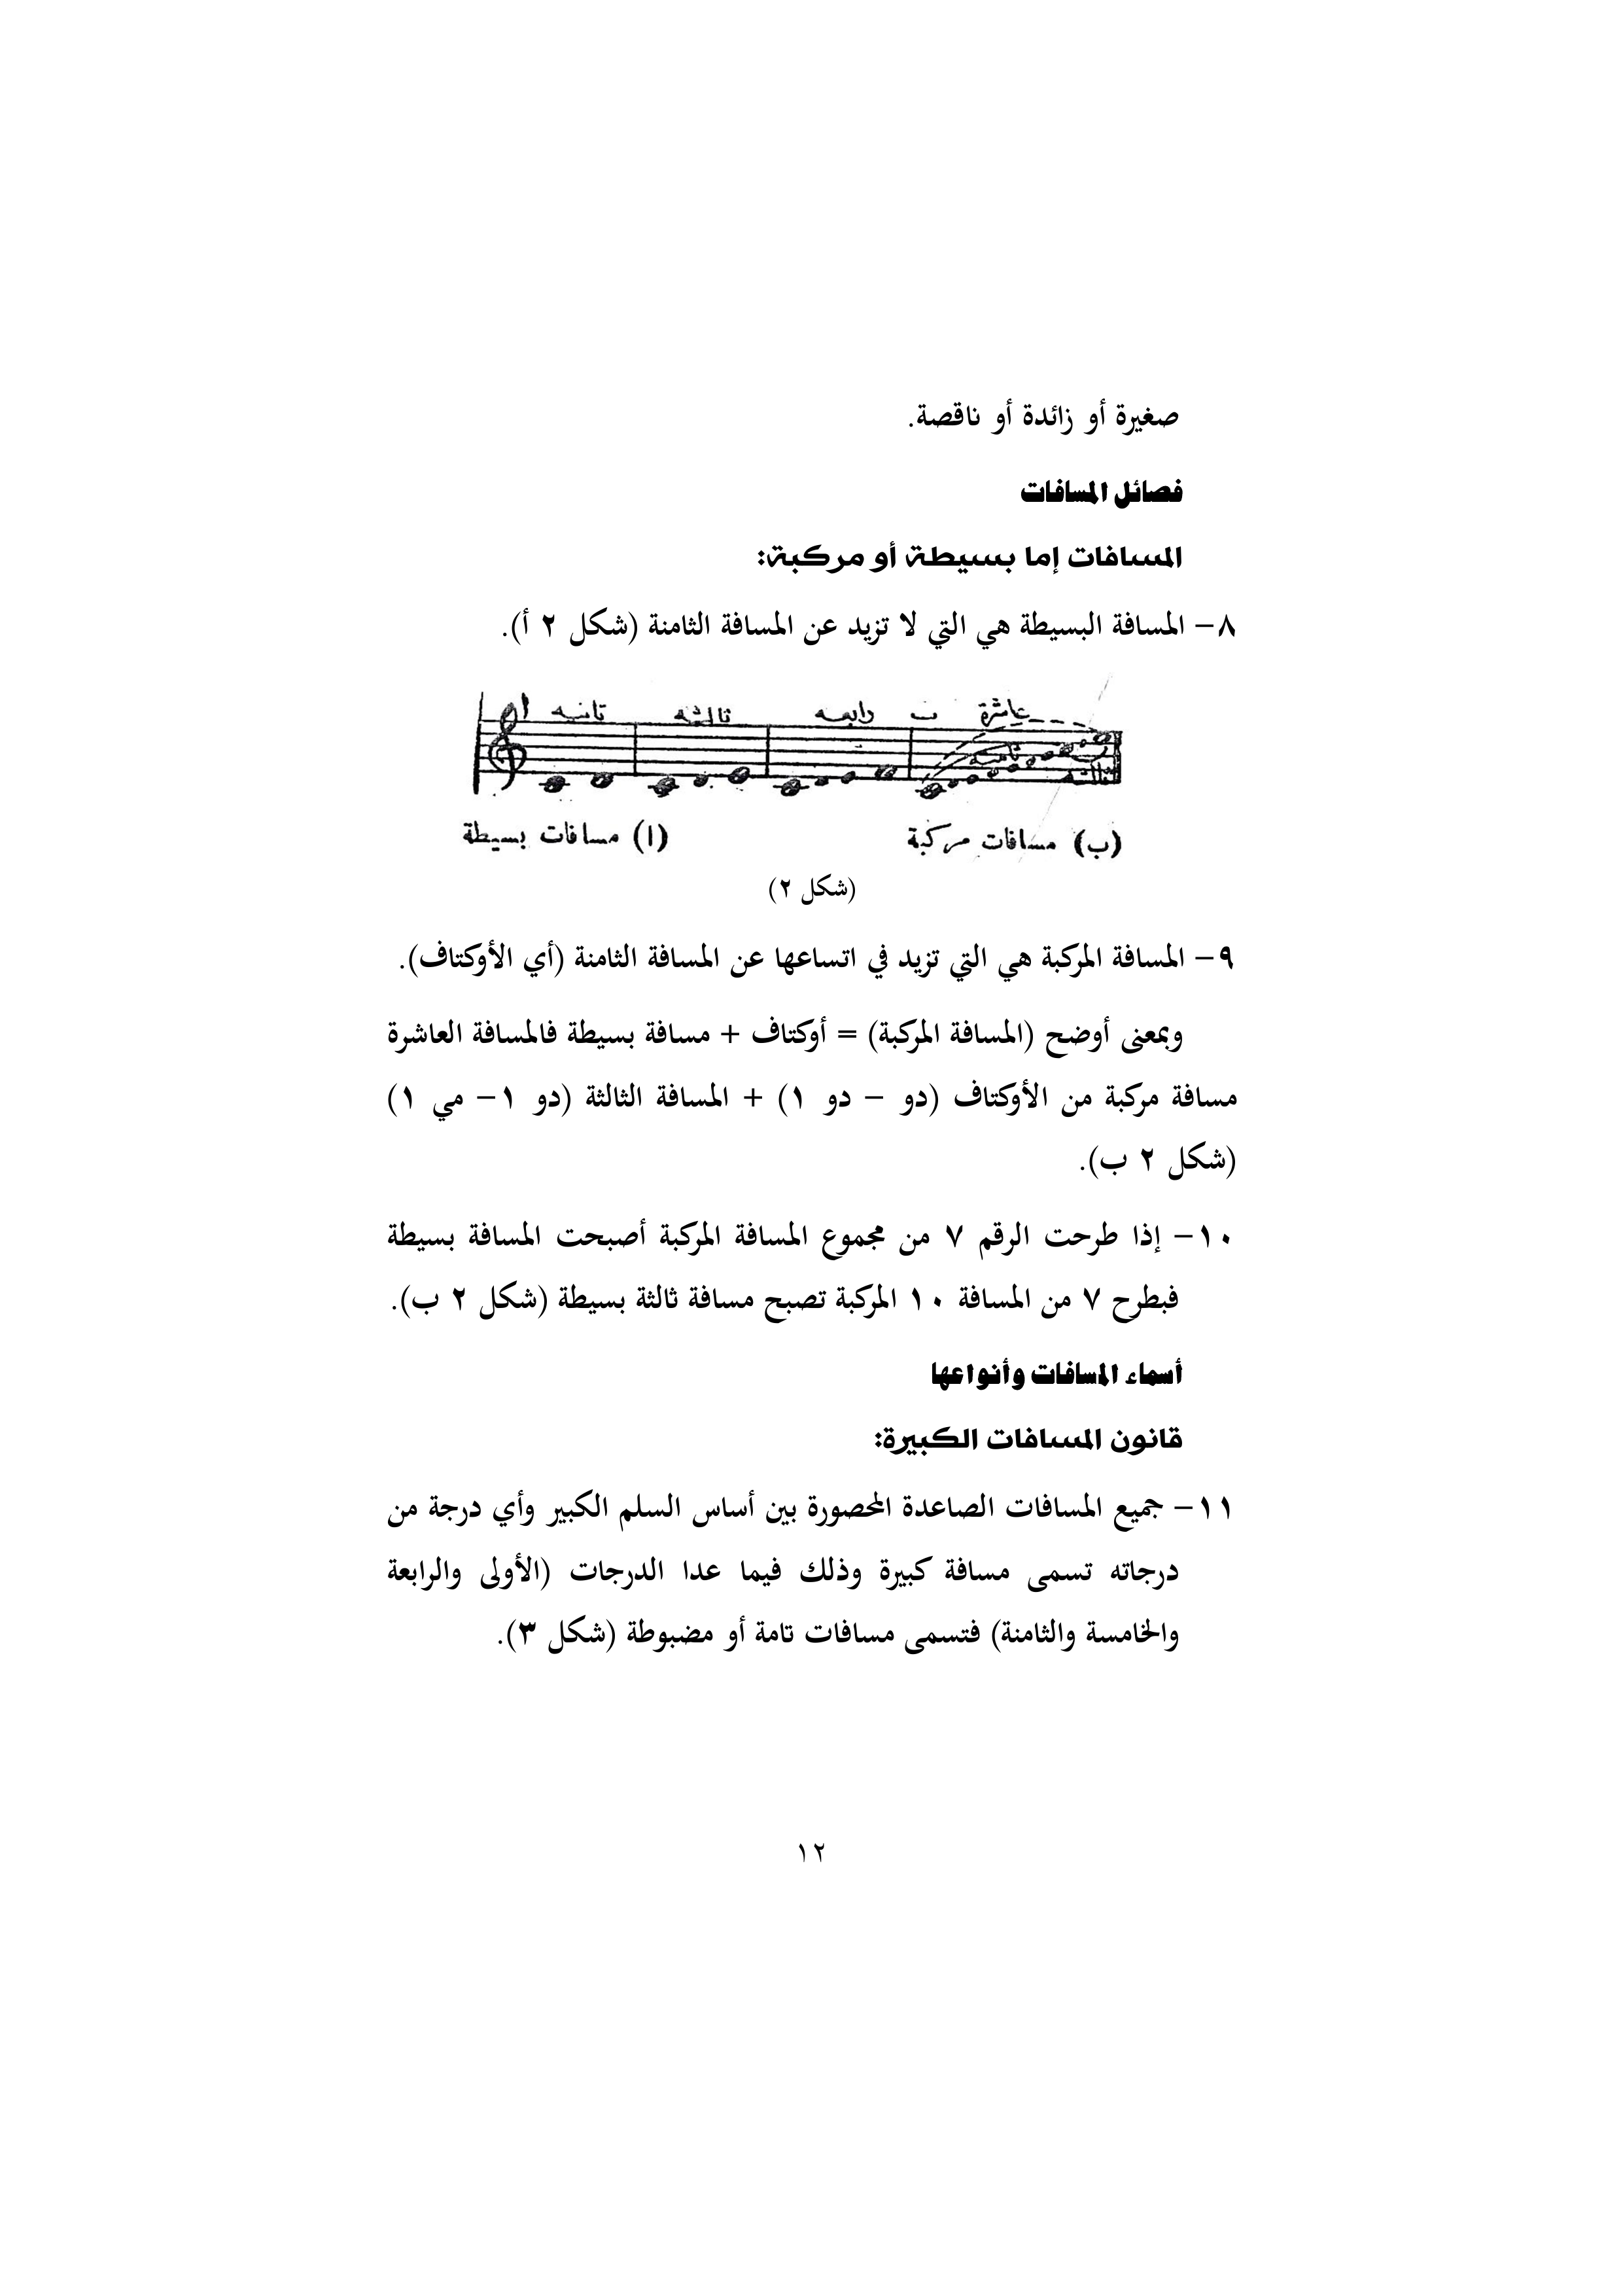 صغيرة أو زائدة أو ناقصة.
فصائل المسافات
المسافات إما بسيطة أو مركبة:
٨- المسافة البسيطة هي التي لا تزيد عن المسافة الثامنة (شكل ٢ أ).
ا ثانيه ثالثه رابعه ب عاشرة
ثامنة
ثالثه
(ا) مسافات بسيطة (ب) مسافات مركبة
(شكل ٢)
٩- المسافة المركبة هي التي تزيد في اتساعها عن المسافة الثامنة (أي الأوكتاف).
وبمعنى أوضح (المسافة المركبة) = أوكتاف + مسافة بسيطة فالمسافة العاشرة
مسافة مركبة من الأوكتاف (دو – دو ١) + المسافة الثالثة (دو ١- مي ١)
(شكل ٢ ب).
١٠- إذا طرحت الرقم ٧ من مجموع المسافة المركبة أصبحت المسافة بسيطة
فبطرح ٧ من المسافة ١٠ المركبة تصبح مسافة ثالثة بسيطة (شكل ٢ ب).
أسماء المسافات وأنواعها
قانون المسافات الكبيرة:
١١- جميع المسافات الصاعدة المحصورة بين أساس السلم الكبير وأي درجة من
درجاته تسمى مسافة كبيرة وذلك فيما عدا الدرجات (الأولى والرابعة
والخامسة والثامنة) فتسمى مسافات تامة أو مضبوطة (شكل ٣).
١٢